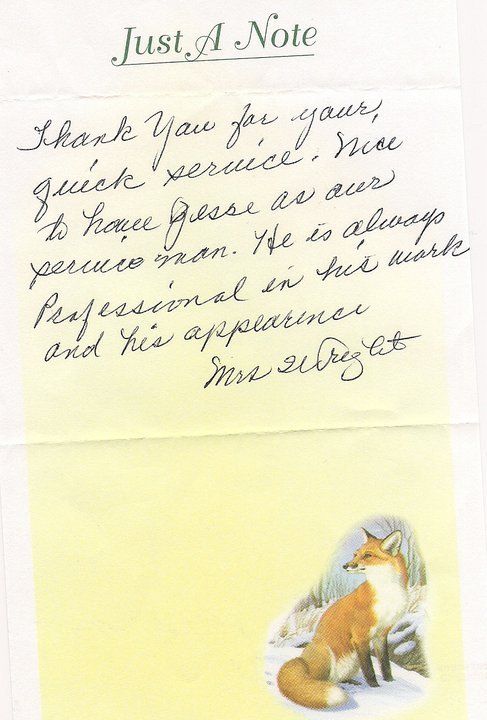 Just A Note
Thank You for your
quick service. Nice
to have Jesse as our
service man. He is always
Professional in his work
and his appearence
Mrs Wright